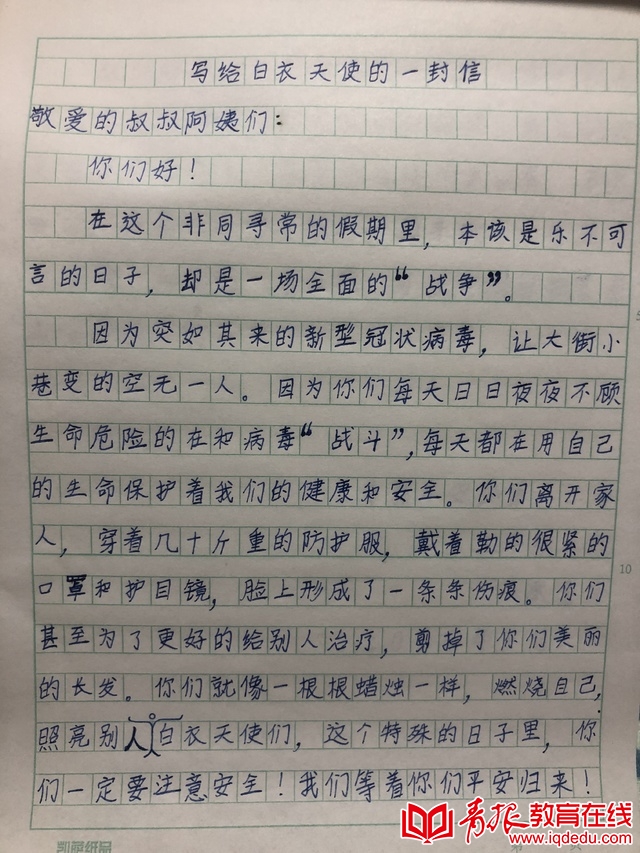 写给白衣天使的一封信
敬爱的叔叔阿姨们：
你们好！
在这个非同寻常的假期里，本该是乐不可
言的日子，却是一场全面的“战争”。
因为突如其来的新型冠状病毒，让大街小
巷变的空无一人。因为你们每天日日夜夜不顾
生命危险的在和病毒“战斗”，每天都在用自己
的生命保护着我们的健康和安全。你们离开家
人，穿着几十斤重的防护服，戴着勒的很紧的
口罩和护目镜，脸上形成了一条条伤痕。你们
甚至为了更好的给别人治疗，剪掉了你们美丽
的长发。你们就像一根根蜡烛一样，燃烧自己，
照亮别人。白衣天使们，这个特殊的日子里，你
们一定要注意安全！我们等着你们平安归来！
10
凯萨纸品
第
页
青报教育在线
www.iqdedu.com